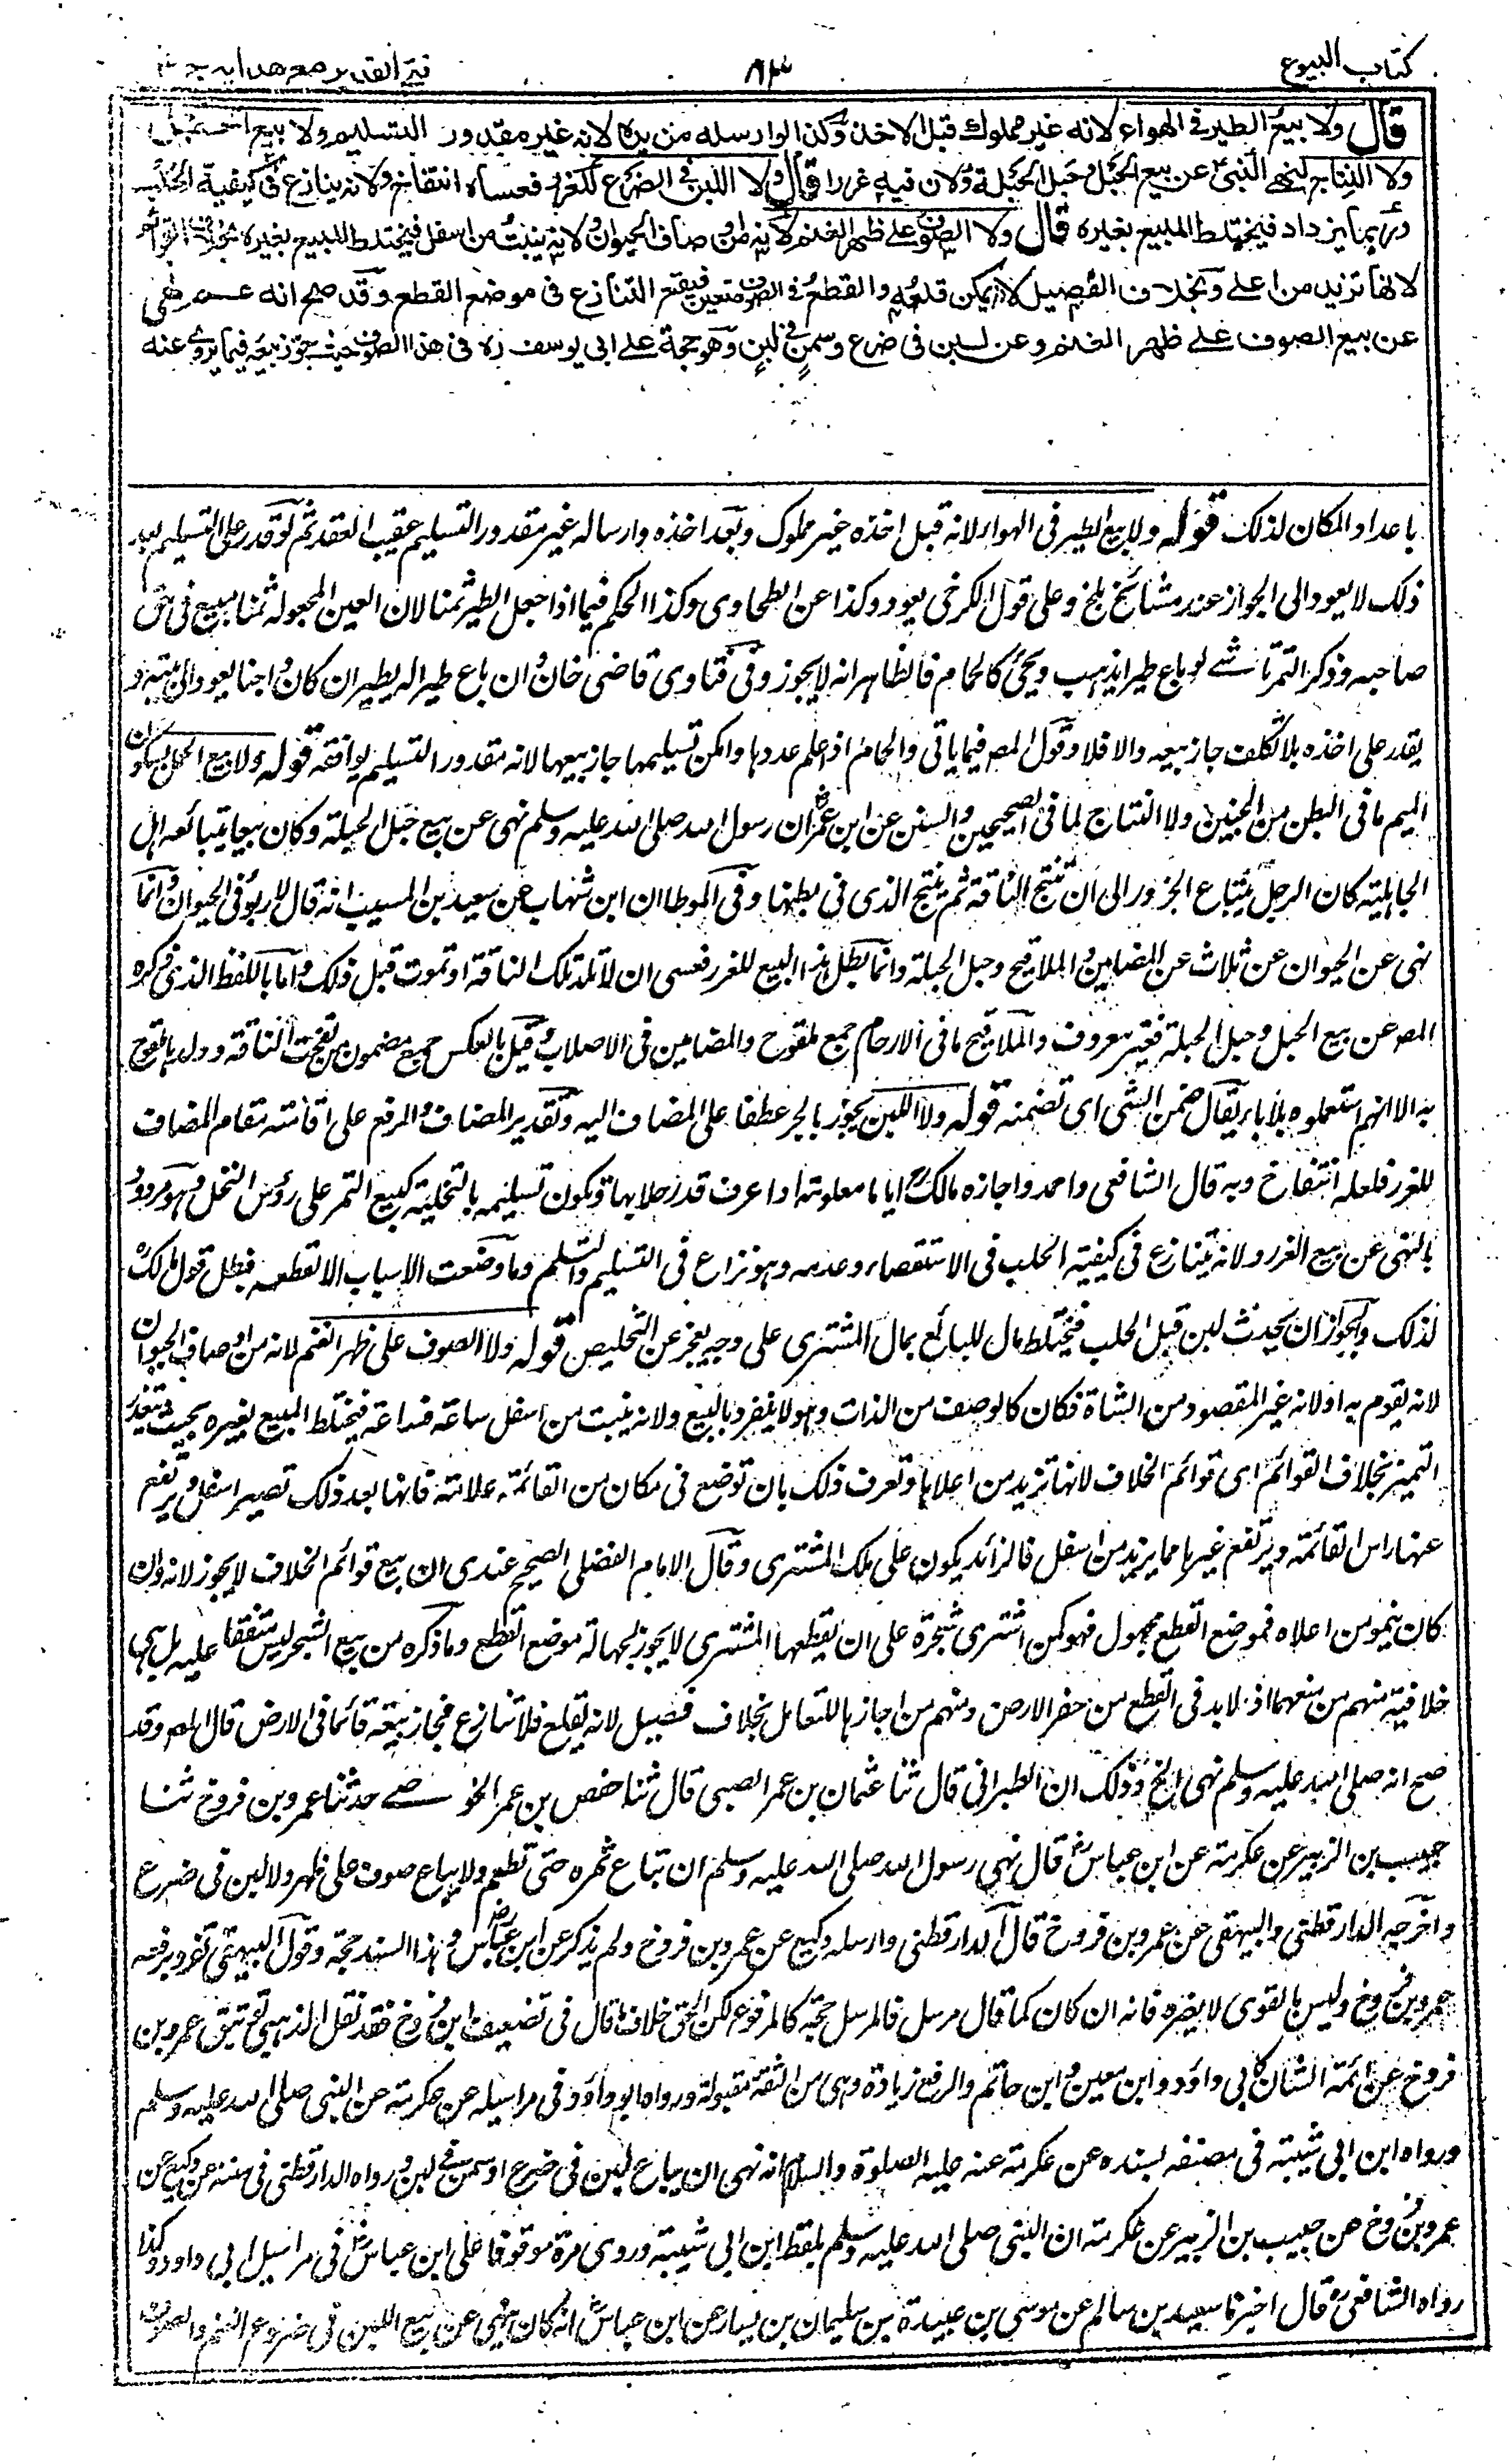 كتاب البيوع
٨٣
فتح القدير مع هدايه ج
قال ولا بيع الطير فى الهواء لانه غير مملوك قبل الاخذ وكذا لو ارسله من يده لانه غير مقدور التسليم ولا بيع الحمل
ولا النتاج لنهى النبى عن بيع الحبل وحبل الحبلة ولان فيه غررا قال ولا اللبن فى الضرع للغرر فعساه انتفاخ ولانه ينازع فى كيفية الحلب
وربما يزداد فيختلط المبيع بغيره قال ولا الصوف على ظهر الغنم لانه من اوصاف الحيوان ولانه ينبت من اسفل فيختلط المبيع بغيره بخلاف القوائم
لانها تزيد من اعلى وبخلاف القصيل لانه يمكن قلعه والقطع فى الصوف متعين فيقع التنازع فى موضع القطع وقد صح انه عم نهى
عن بيع الصوف على ظهر الغنم وعن لبن فى ضرع وسمن فى لبن وهو حجة على ابى يوسف رة فى هذا الصوف حيث جوز بيعه فيما يروى عنه
باعداد المكان لذلك قوله ولا بيع الطير فى الهواء لانه قبل اخذه غير مملوك وبعد اخذه وارساله غير مقدور التسليم عقيب العقد ثم لو قدر على التسليم بعد
ذلك لا يعود الى الجواز عند مشائخ بلخ وعلى قول الكرخى يعود وكذا عن الطحاوى وكذا الحكم فيما اذا جعل الطير ثمنا لان العين المجعولة ثمنا مبيع فى حق
صاحبه وذكر التمرتاشى لو باع طيرا يذهب ويجئ كالحمام فالظاهر انه لا يجوز وفى فتاوى قاضى خان وان باع طيرا له يطير ان كان داجنا يعود الى بيته و
يقدر على اخذه بلا تكلف جاز بيعه والا فلا وقول المصه فيما ياتى والحمام اذا علم عددها وامكن تسليمها جاز بيعها لانه مقدور التسليم يوافقه قوله ولا بيع الحمل بسكون
الميم ما فى البطن من الجنين ولا النتاج لما فى الصحيحين والسنن عن ابن عمر ان رسول الله صلى الله عليه وسلم نهى عن بيع حبل الحبلة وكان بيعا يتبائعه اهل
الجاهلية كان الرجل يبتاع الجزور الى ان تنتج الناقة ثم ينتج الذى فى بطنها وفى الموطا ان ابن شهاب عن سعيد بن المسيب انه قال لا ربو فى الحيوان وانما
نهى عن الحيوان عن ثلاث عن المضامين والملاقيح وحبل الحبلة وانما بطل هذا البيع للغرر فعسى ان لا تلد تلك الناقة او تموت قبل ذلك واما باللفظ الذى ذكره
المصه عن بيع الحبل وحبل الحبلة فغير معروف والملاقيح ما فى الارحام جمع ملقوح والمضامين فى الاصلاب وقيل بالعكس جمع مضمون من لقحت الناقة وولدها ملقوح
به الا انهم استعملوه بلا باء يقال ضمن الشى اى تضمنه قوله ولا اللبن يجوز بالجر عطفا على المضاف اليه وتقدير المضاف والرفع على اقامته مقام المضاف
للغرر فلعله انتفاخ وبه قال الشافعى واحمد واجازه مالك اياما معلومة اذا عرف قدر حلابها ويكون تسليمه بالتخلية كبيع الثمر على رؤس النخل وهو مردود
بالنهى عن بيع الغرر ولانه يتنازع فى كيفية الحلب فى الاستقصاء وعدمه وهو نزاع فى التسليم والتسلم وما وضعت الاسباب الا لقطعه فبطل قول مالك
لذلك ولجواز ان يحدث لبن قبل الحلب فيختلط مال للبائع بمال المشترى على وجه يعجز عن التخليص قوله ولا الصوف على ظهر الغنم لانه من اوصاف الحيوان
لانه يقوم به او لانه غير المقصود من الشاة فكان كالوصف من الذات وهو لا ينفرد بالبيع ولانه ينبت من اسفل ساعة فساعة فيختلط المبيع بغيره بحيث يتعذر
التميز بخلاف القوائم اى قوائم الخلاف لانها تزيد من اعلاها وتعرف ذلك بان توضع فى مكان من القائمة علامة فانها بعد ذلك تصير اسفل ويرتفع
عنها راس القائمة ويرتفع غيرها مما يزيد من اسفل فالزائد يكون على ملك المشترى وقال الامام الفضلى الصحيح عندى ان بيع قوائم الخلاف لا يجوز لانه وان
كان ينمو من اعلاه فموضع القطع مجهول فهو كمن اشترى شجرة على ان يقطعها المشترى لا يجوز لجهالة موضع القطع وما ذكره من بيع الشجر ليس متفقا عليه بل هى
خلافية منهم من منعها اذ لا بد فى القطع من حفر الارض ومنهم من اجازها للتعامل بخلاف فصيل لانه يقلع فلا تنازع فجاز بيعه قائما فى الارض قال المصه وقد
صح انه صلى الله عليه وسلم نهى الخ وذلك ان الطبرانى قال ثنا عثمان بن عمر الضبى قال ثنا حفص بن عمر الحوضى حدثنا عمرو بن فروخ ثنا
حبيب بن الزبير عن عكرمة عن ابن عباس قال نهى رسول الله صلى الله عليه وسلم ان تباع ثمره حتى تطعم ولا يباع صوف على ظهر ولا لبن فى ضرع
واخرجه الدارقطنى والبيهقى عن عمرو بن فروخ قال الدارقطنى وارسله وكيع عن عمرو بن فروخ ولم يذكر عن ابن عباس وهذا السند حجة وقول البيهقى تفرد برفعه
عمرو بن فروخ وليس بالقوى لا يضره فانه ان كان كما قال مرسل فالمرسل حجة كالمرفوع لكن الحق خلاف ما قال فى تضعيف ابن فروخ فقد نقل الذهبى توثيق عمرو بن
فروخ عن ائمة الشان كابى داؤد وابن معين وابن حاتم والرفع زيادة وهى من الثقة مقبولة ورواه ابو داؤد فى مراسيله عن عكرمة عن النبى صلى الله عليه وسلم
ورواه ابن ابى شيبة فى مصنفه بسنده عن عكرمة عنه عليه الصلوة والسلام انه نهى ان يباع لبن فى ضرع او سمن فى لبن ورواه الدارقطنى فى سننه عن وكيع عن
عمرو بن فروخ عن حبيب بن الزبير عن عكرمة ان النبى صلى الله عليه وسلم بلفظ ابن ابى شيبة وروى مرة موقوفا على ابن عباس فى مراسيل ابى داود وكذا
رواه الشافعى قال اخبرنا سعيد بن سالم عن موسى بن عبيدة بن سليمان بن يسار عن ابن عباس انه كان ينهى عن بيع اللبن فى ضروع الغنم والصوف